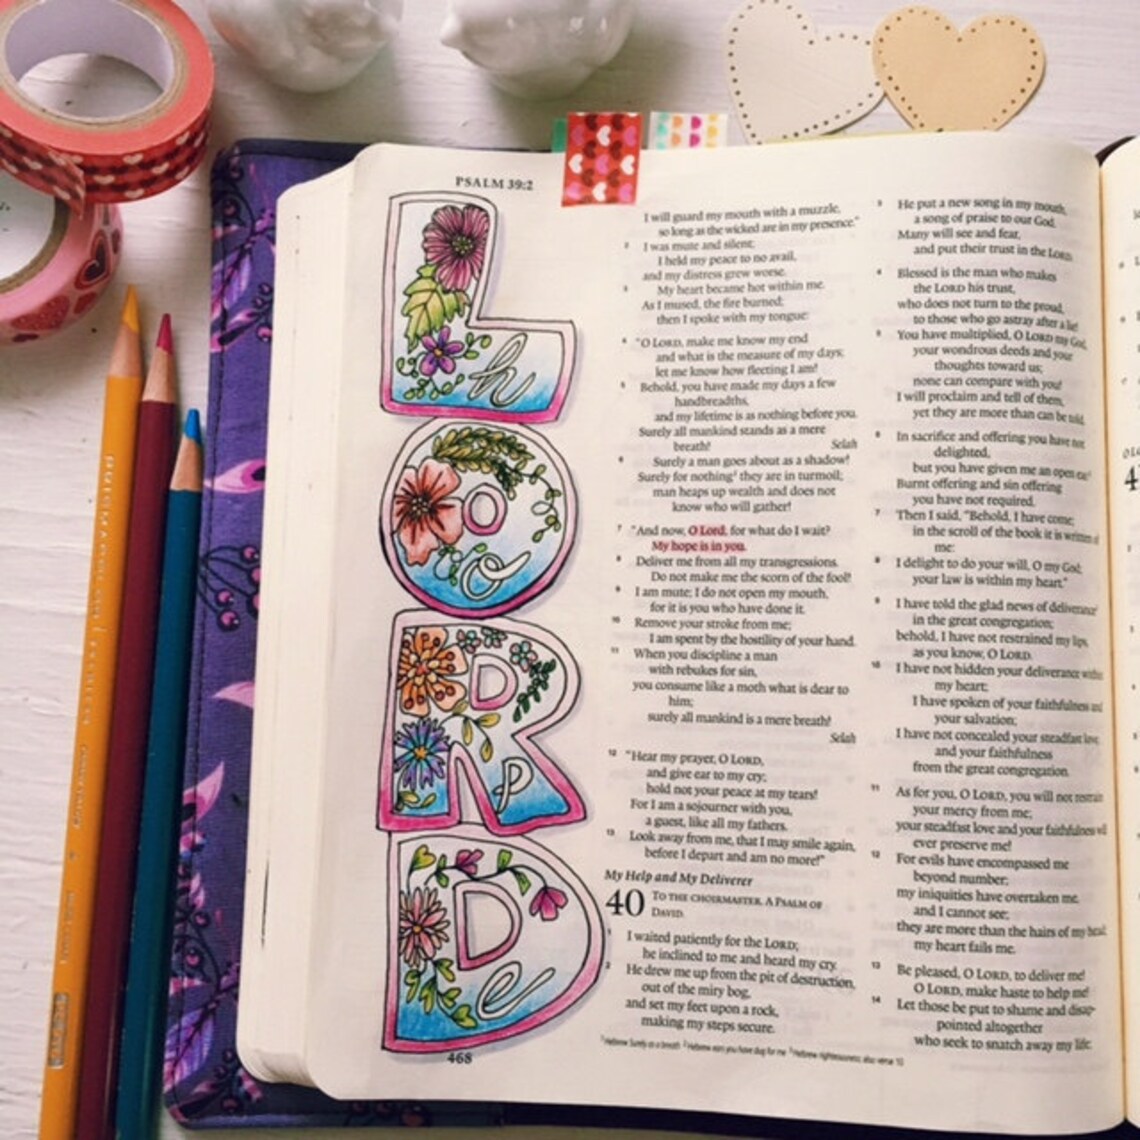 PSALM 39:2
L
h
O
o
R
p
D
e
468
I will guard my mouth with a muzzle,
so long as the wicked are in my presence."
2 I was mute and silent;
I held my peace to no avail,
and my distress grew worse.
3 My heart became hot within me.
As I mused, the fire burned;
then I spoke with my tongue:
4 "O LORD, make me know my end
and what is the measure of my days;
let me know how fleeting I am!
5 Behold, you have made my days a few
handbreadths,
and my lifetime is as nothing before you.
Surely all mankind stands as a mere
breath! Selah
6 Surely a man goes about as a shadow!
Surely for nothing1 they are in turmoil;
man heaps up wealth and does not
know who will gather!
7 "And now, O Lord, for what do I wait?
My hope is in you.
8 Deliver me from all my transgressions.
Do not make me the scorn of the fool!
9 I am mute; I do not open my mouth,
for it is you who have done it.
10 Remove your stroke from me;
I am spent by the hostility of your hand.
11 When you discipline a man
with rebukes for sin,
you consume like a moth what is dear to
him;
surely all mankind is a mere breath!
Selah
12 "Hear my prayer, O LORD,
and give ear to my cry;
hold not your peace at my tears!
For I am a sojourner with you,
a guest, like all my fathers.
13 Look away from me, that I may smile again,
before I depart and am no more!"
My Help and My Deliverer
40 TO THE CHOIRMASTER. A PSALM OF
DAVID.
1 I waited patiently for the LORD;
he inclined to me and heard my cry.
2 He drew me up from the pit of destruction,
out of the miry bog,
and set my feet upon a rock,
making my steps secure.
3 He put a new song in my mouth,
a song of praise to our God.
Many will see and fear,
and put their trust in the LORD.
4 Blessed is the man who makes
the LORD his trust,
who does not turn to the proud,
to those who go astray after a lie!
5 You have multiplied, O LORD my God,
your wondrous deeds and your
thoughts toward us;
none can compare with you!
I will proclaim and tell of them,
yet they are more than can be told.
6 In sacrifice and offering you have not
delighted,
but you have given me an open ear.2
Burnt offering and sin offering
you have not required.
7 Then I said, "Behold, I have come;
in the scroll of the book it is written of
me:
8 I delight to do your will, O my God;
your law is within my heart."
9 I have told the glad news of deliverance3
in the great congregation;
behold, I have not restrained my lips,
as you know, O LORD.
10 I have not hidden your deliverance within
my heart;
I have spoken of your faithfulness and
your salvation;
I have not concealed your steadfast love
and your faithfulness
from the great congregation.
11 As for you, O LORD, you will not restrain
your mercy from me;
your steadfast love and your faithfulness will
ever preserve me!
12 For evils have encompassed me
beyond number;
my iniquities have overtaken me,
and I cannot see;
they are more than the hairs of my head;
my heart fails me.
13 Be pleased, O LORD, to deliver me!
O LORD, make haste to help me!
14 Let those be put to shame and disap-
pointed altogether
who seek to snatch away my life;
1 Hebrew Surely as a breath 2 Hebrew ears you have dug for me 3 Hebrew righteousness; also verse 10